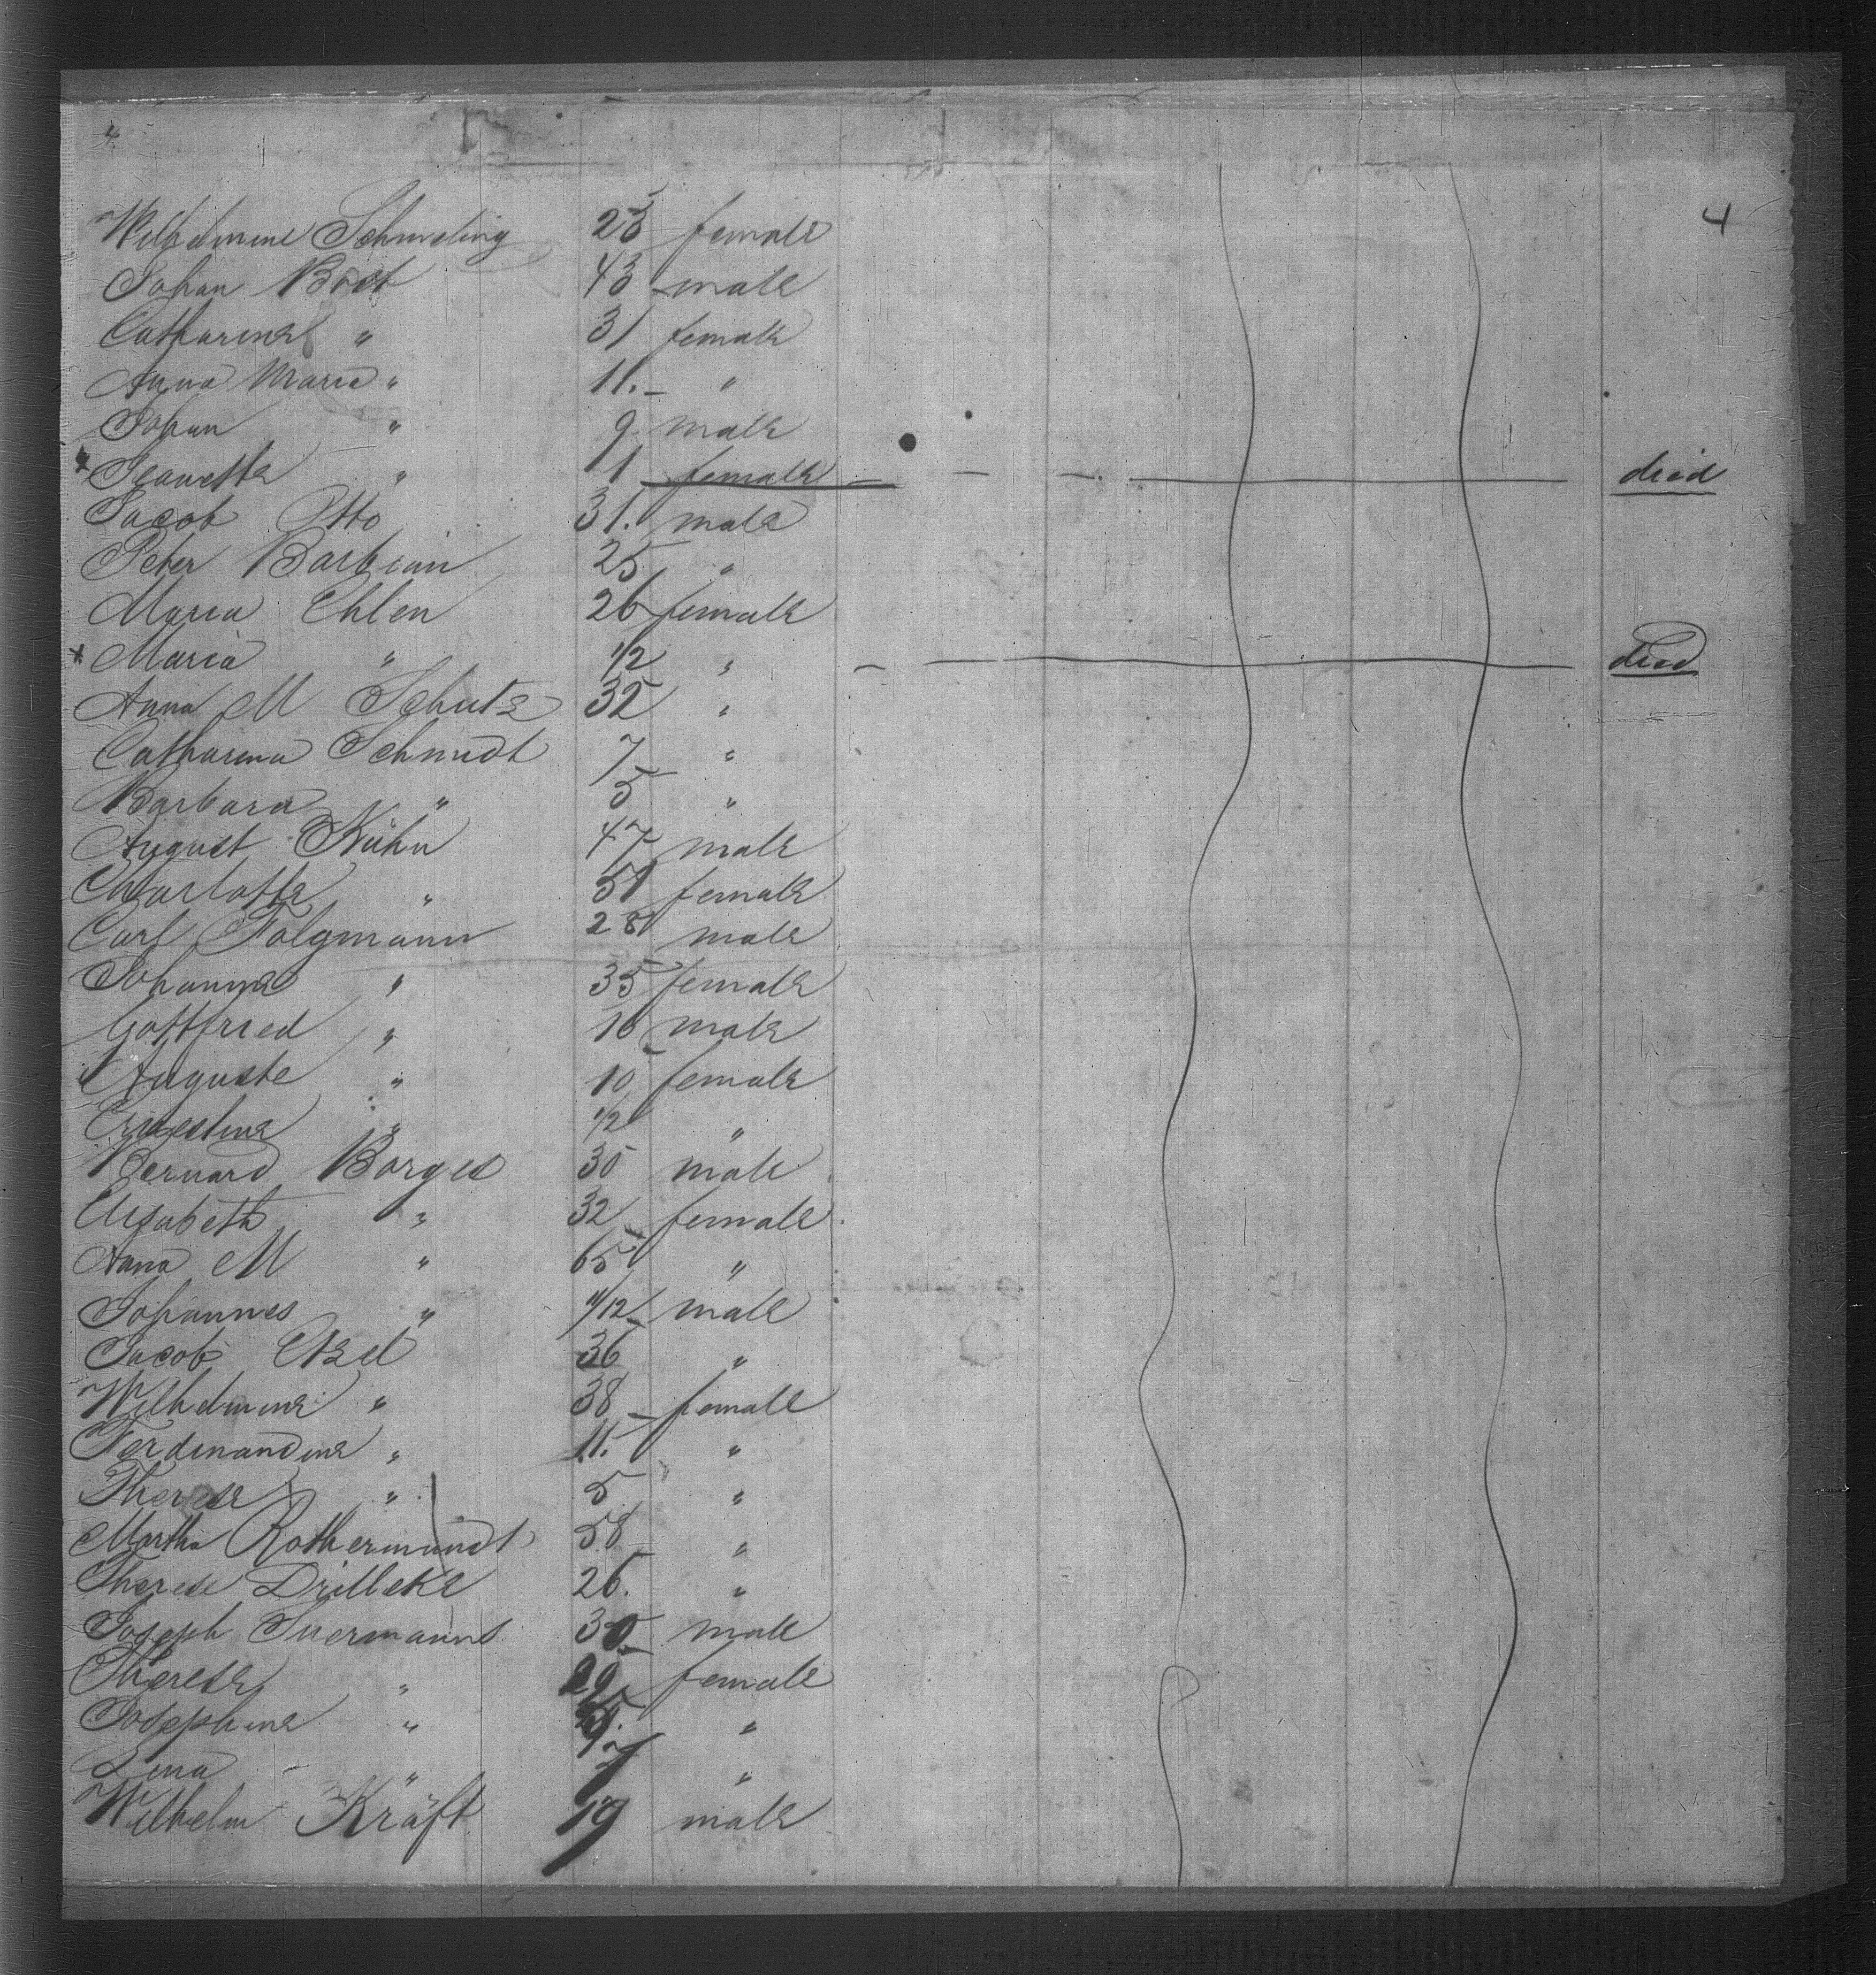 4
4
Wilhelmine Schmeling 23 female
Johan Bost 43 male
Catharina " 31 female
Anna Maria " 11. "
Johan " 9 male
Jeanette " 1 female died
Jacob Otto 31. male
Peter Barbian 25 "
Maria Ehlen 26 female
Maria " 1/2 " died
Anna M Schutz 32 "
Catharina Schmidt 7 "
Barbara " 5 "
August Kühn 47 male
Charlotte " 51 female
Carl Folgmann 28 male
Johanna " 35 female
Gottfried " 16 male
Auguste " 10 female
Ernestine " 1/2 "
Bernard Borges 30 male
Elisabeth " 32 female
Anna M " 65 "
Johannes " 11/12 male
Jacob Etzel 36 "
Wilhelmine " 38 female
Ferdinandine " 11. "
Therese " 5 "
Martha Rothermundt 58 "
Therese Drilleke 26. "
Joseph Suermann 30 male
Therese " 29 female
Josephine " "
Lina " 7 "
Wilhelm Kräft 19 male